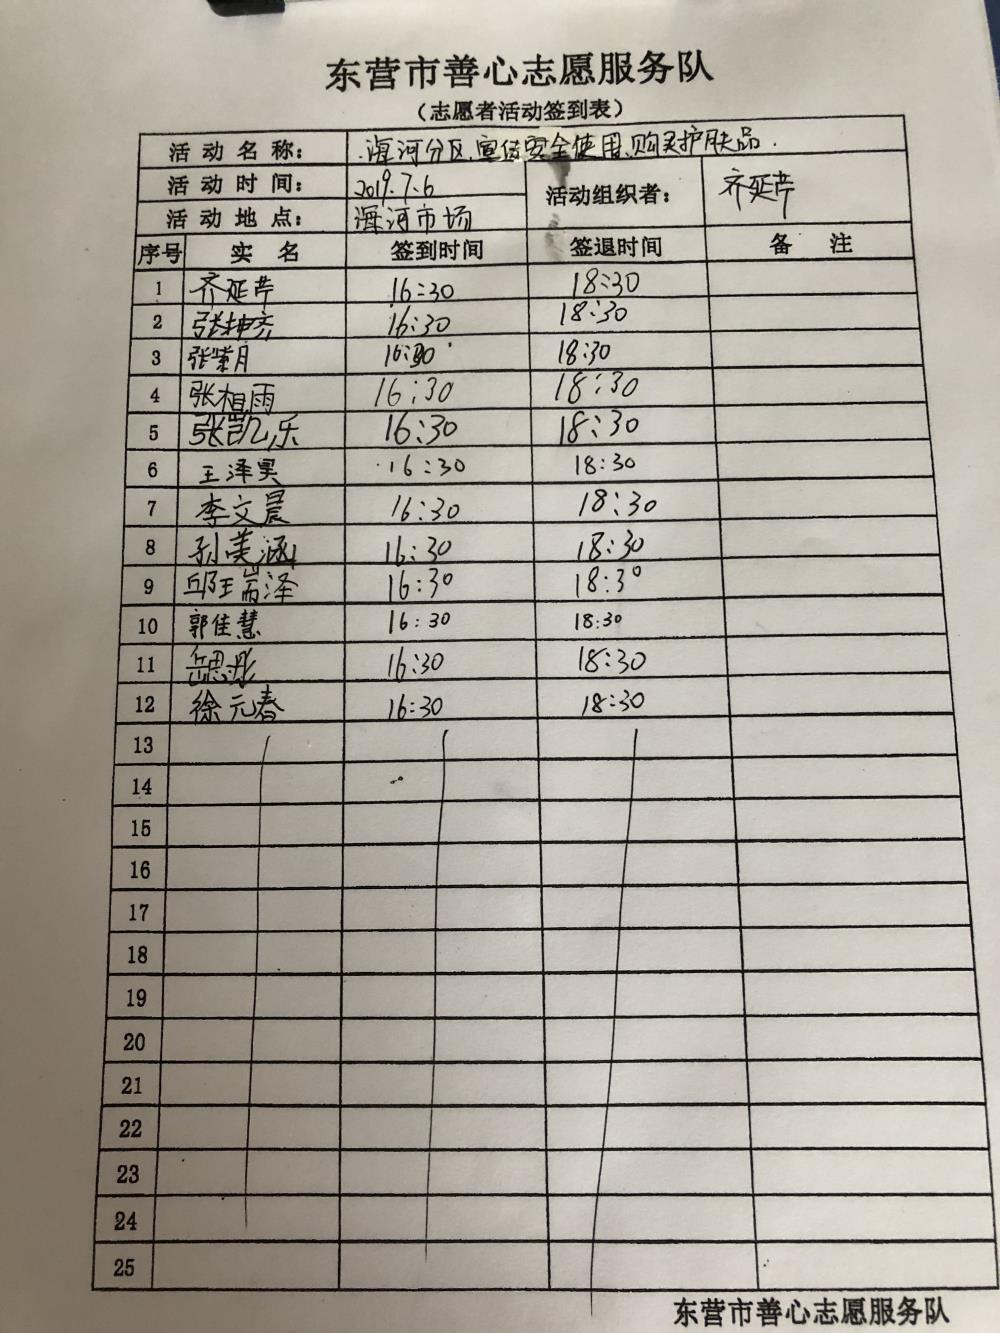 东营市善心志愿服务队
（志愿者活动签到表）
活动名称： 河分区.宣传安全使用、购买护肤品.
活动时间： 2019.7.6 活动组织者： 齐延芹
活动地点： 河市场
序号 实名 签到时间 签退时间 备注
1 齐延芹 16:30 18:30
2 张坤齐 16:30 18:30
3 张紫月 16:30 18:30
4 张相雨 16:30 18:30
5 张凯乐 16:30 18:30
6 王泽昊 16:30 18:30
7 李文晨 16:30 18:30
8 孙美涵 16:30 18:30
9 邱王岩泽 16:30 18:30
10 郭佳慧 16:30 18:30
11 岳思彤 16:30 18:30
12 徐元春 16:30 18:30
13
14
15
16
17
18
19
20
21
22
23
24
25
东营市善心志愿服务队